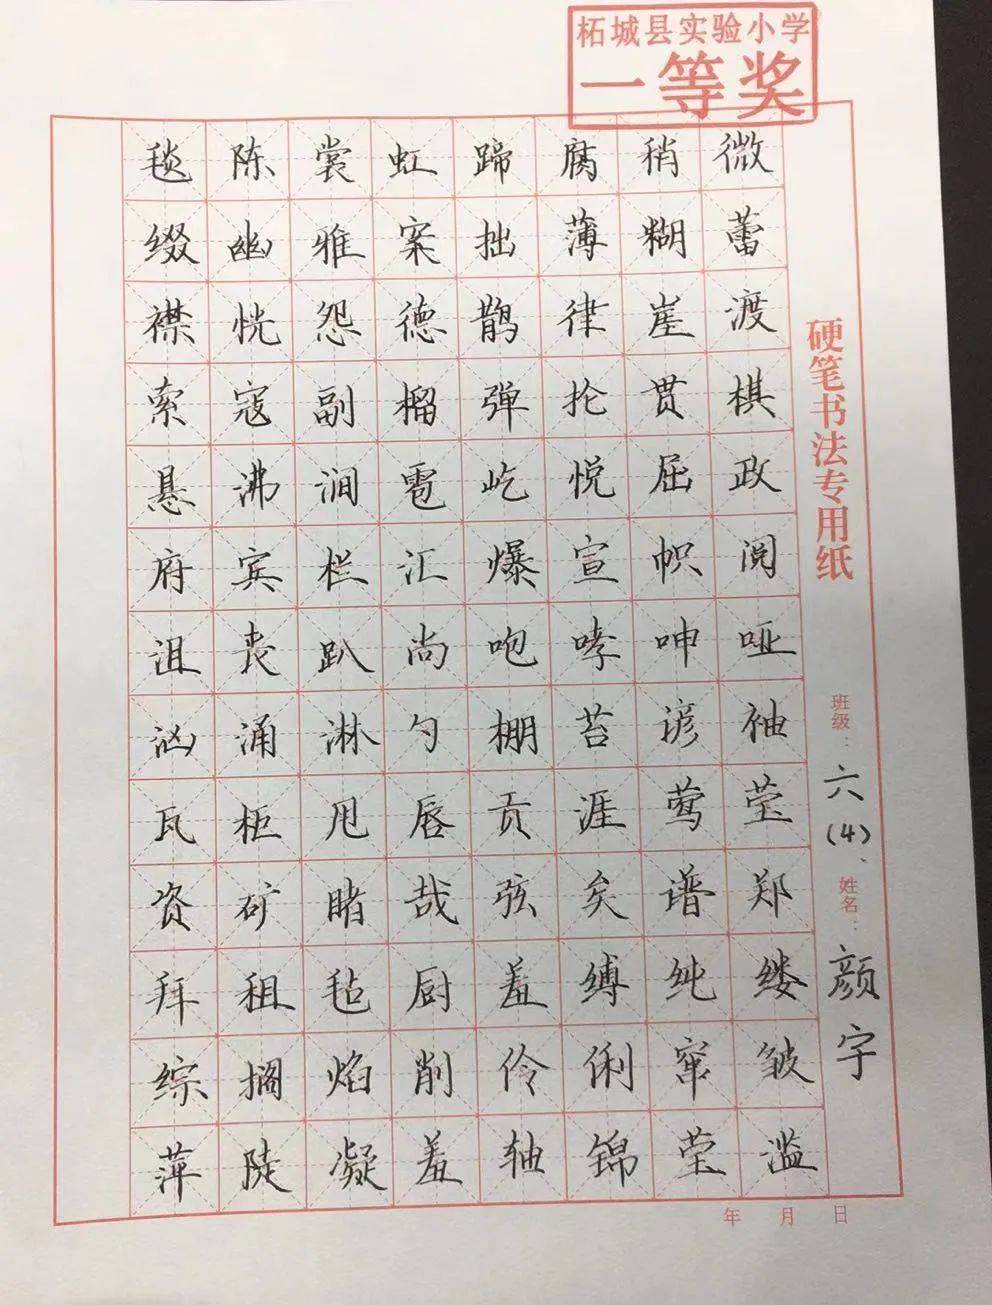 柘城县实验小学
一等奖
毯陈裳虹蹄腐稍微
缀幽雅案拙薄糊蕾
襟恍怨德鹊律崖渡
索寇副榴弹抡贯棋
悬沸涧雹屹悦屈政
府宾栏汇爆宣帜阅
沮丧趴尚咆哮呻哑
汹涌淋勺棚苔谚袖
瓦柜甩唇贡涯莺莹
资矿睹哉弦矣谱郑
拜租毡厨羞缚纯缕
综搁焰削伶俐窜皱
萍陡凝羞轴锦莹滥
硬笔书法专用纸
班级：六(4)、姓名：颜宇
年 月 日